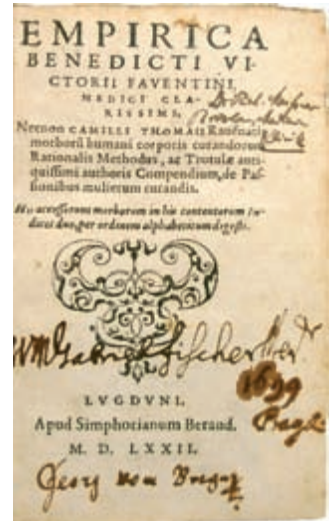 EMPIRICA
BENEDICTI VI-
CTORII FAVENTINI,
MEDICI CLA-
RISSIMI,
Necnon CAMILLI THOMAII Rauenatis
morborū humani corporis curandorum
Rationalis Methodus, ac Trotulæ anti-
quissimi authoris Compendium, de Pas-
sionibus mulierum curandis.
His accesserunt morborum in his contentorum In-
dices duo, per ordinem alphabeticum digesti.
1699
LVGDVNI,
Apud Simphorianum Beraud.
M. D. LXXII.
Georg von